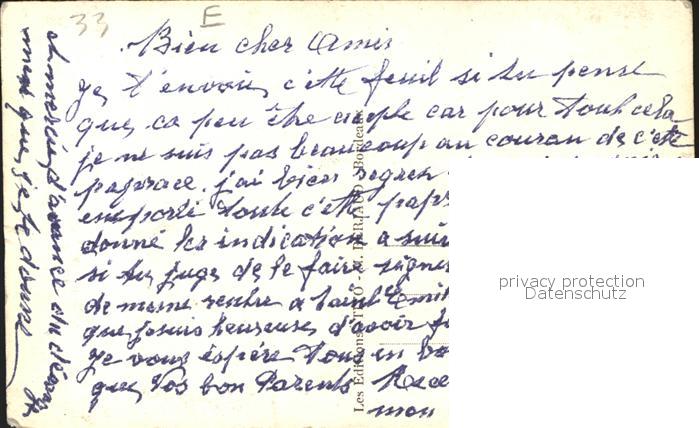 33
E
Bien cher Amis
Je, t'envoie, cette feuil si tu pense
que, ca peu être car pour tout cela
je ne suis pas beaucoup au couran de c'ete
paprace. j'ai bien regret
emporté toute c'ette papr
donné les indication a suiv
si tu juge de le faire signer
de meme rentre a Emil
que, josuis heureuses d'avoir
Je vous éspére tous en bo
que, vos bon Parents
mon
et mercie, d'avance du déran
ment que, je te donne
Les Editions Bordeaux
privacy protection
Datenschutz